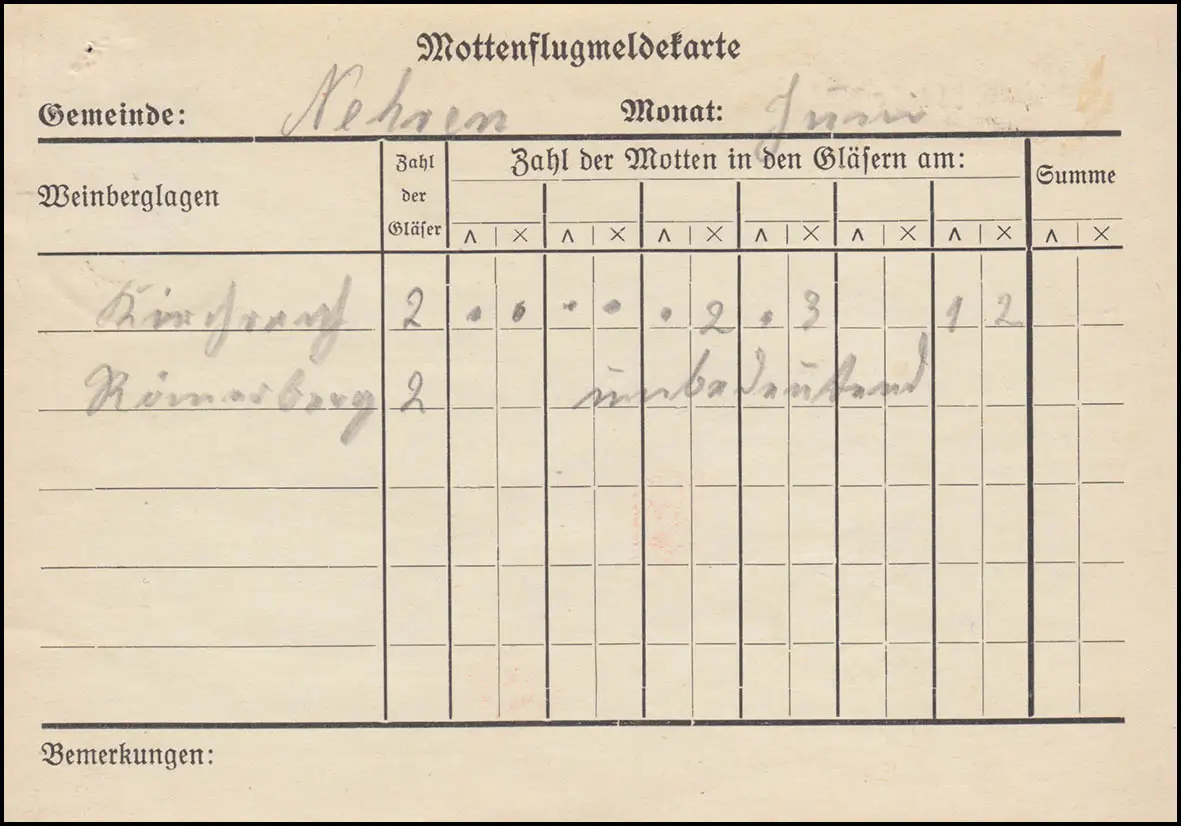 Mottenflugmeldekarte
Gemeinde: Nehren Monat: Juni
Weinberglagen
Zahl
der
Gläser
Zahl der Motten in den Gläsern am:
Summe
∧ × ∧ × ∧ × ∧ × ∧ × ∧ × ∧ ×
2 . . . . . 2 . 3 1 2
Römerberg 2 unbedeutend
Bemerkungen: